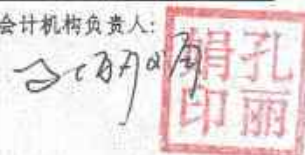 会计机构负责人:
孔丽
娟印